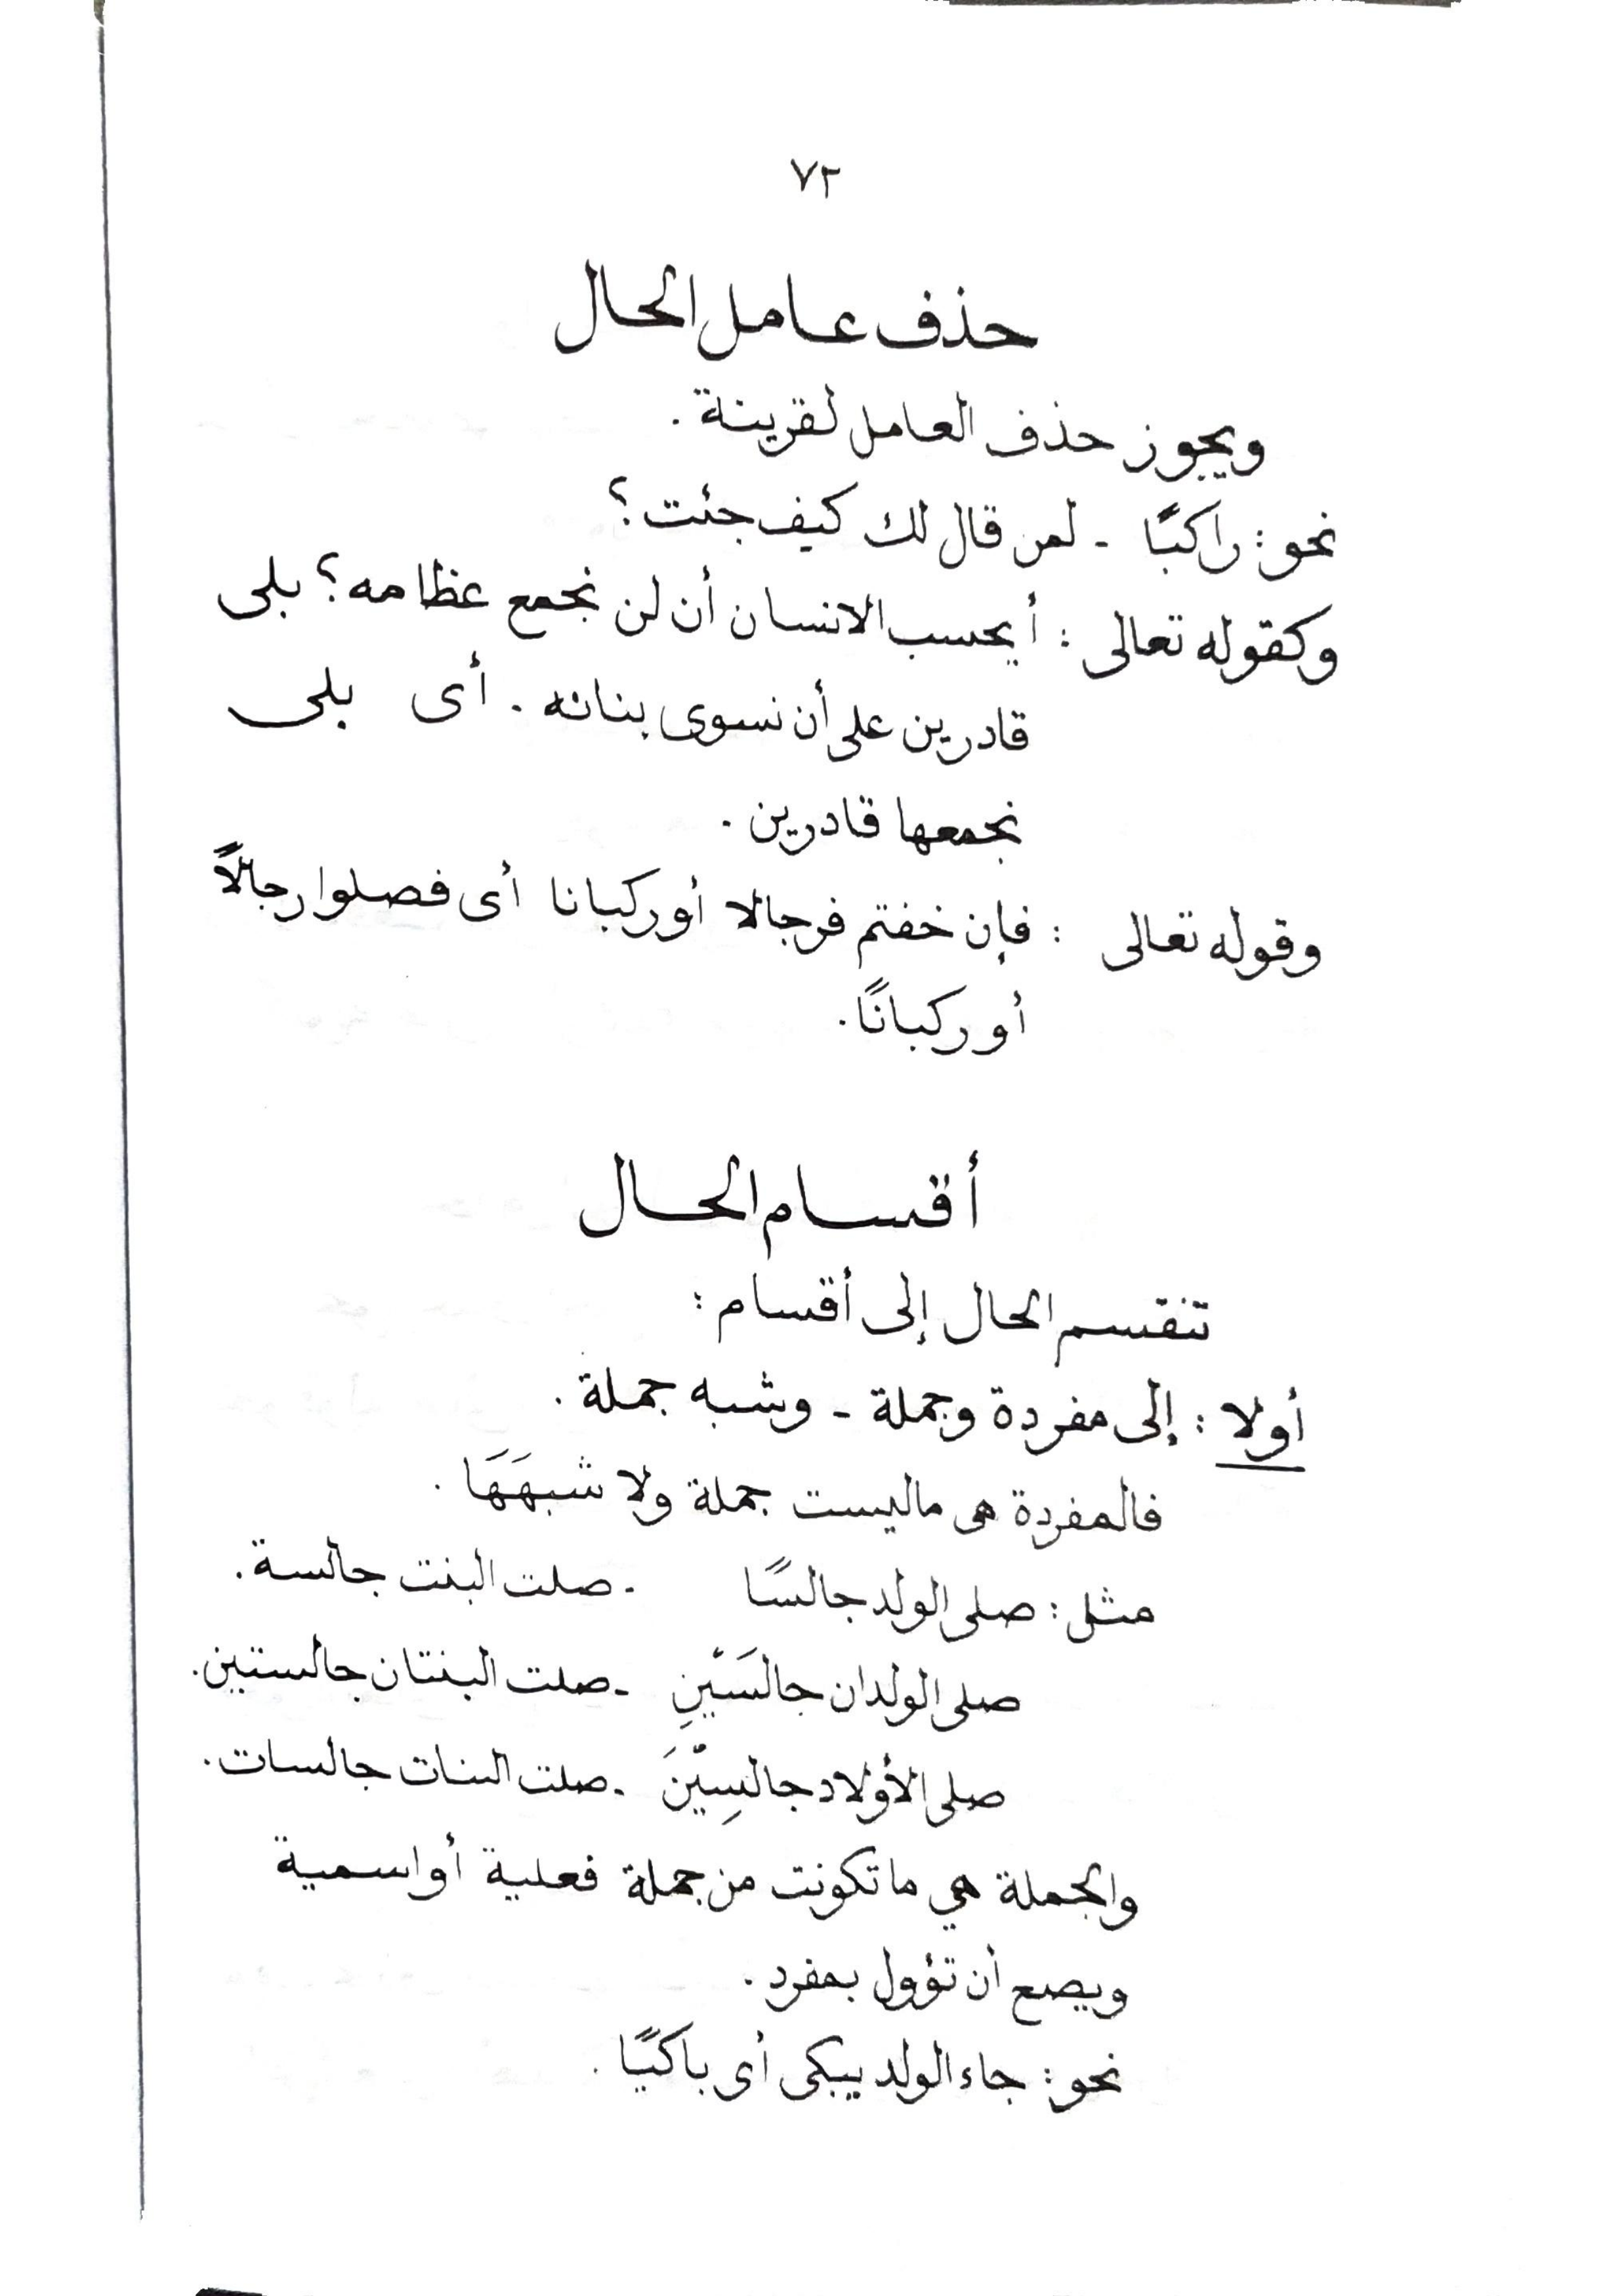 ٧٢
حذف عامل الحال
ويجوز حذف العامل لقرينة .
نحو : راكبًا - لمن قال لك كيف جئت ؟
وكقوله تعالى : أيحسب الانسان أن لن نجمع عظامه ؟ بلى
قادرين على أن نسوى بنانه . أى بلى
نجمعها قادرين .
وقوله تعالى : فإن خفتم فرجالا أو ركبانا أى فصلوا رجالاً
أو ركبانًا .
أقسام الحال
تنقسم الحال إلى أقسام :
أولا : إلى مفردة وجملة - وشبه جملة .
فالمفردة هى ماليست جملة ولا شبهَهَا .
مثل : صلى الولد جالسًا - صلت البنت جالسة .
صلى الولدان جالسَيْنِ - صلت البنتان جالستين .
صلى الأولاد جالسِيْنَ - صلت البنات جالسات .
والجملة هي ما تكونت من جملة فعلية أو اسمية
ويصح أن تؤول بمفرد .
نحو : جاء الولد يبكى أى باكيًا .